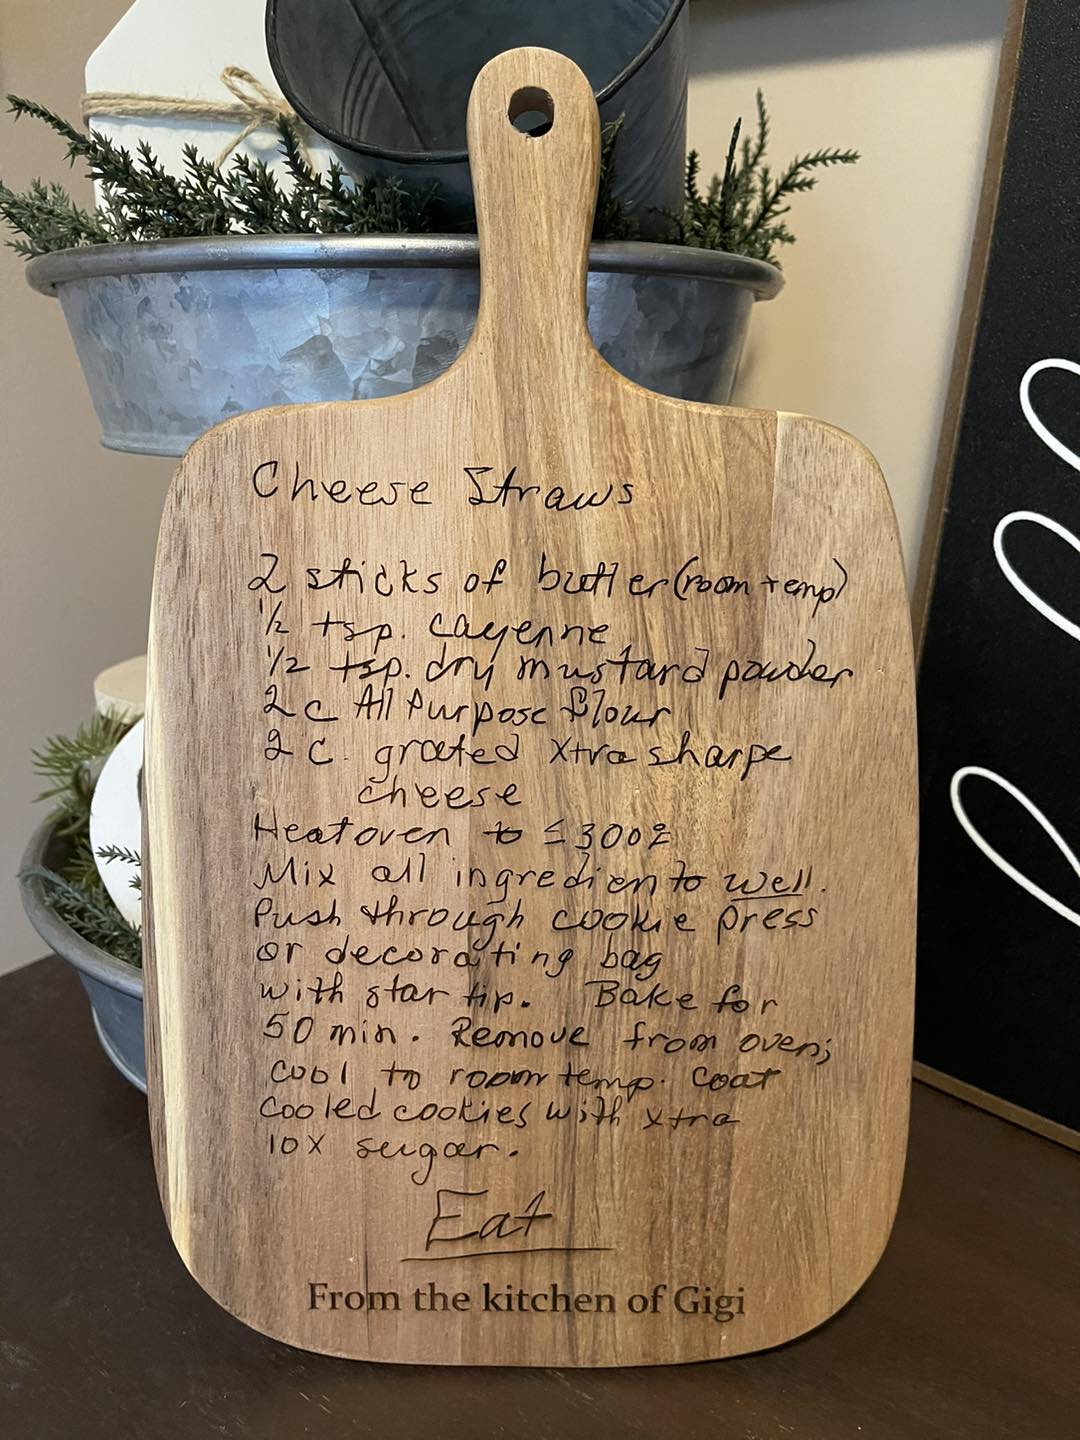 Cheese Straws
2 sticks of butter (room temp)
1/2 tsp. cayenne
1/2 tsp. dry mustard powder
2 c All Purpose flour
2 C. grated xtra sharpe
cheese
Heat oven to ≤ 300°
Mix all ingredients well.
Push through cookie press
or decorating bag
with star tip. Bake for
50 min. Remove from oven;
cool to room temp. Coat
cooled cookies with xtra
10x sugar.
Eat
From the kitchen of Gigi